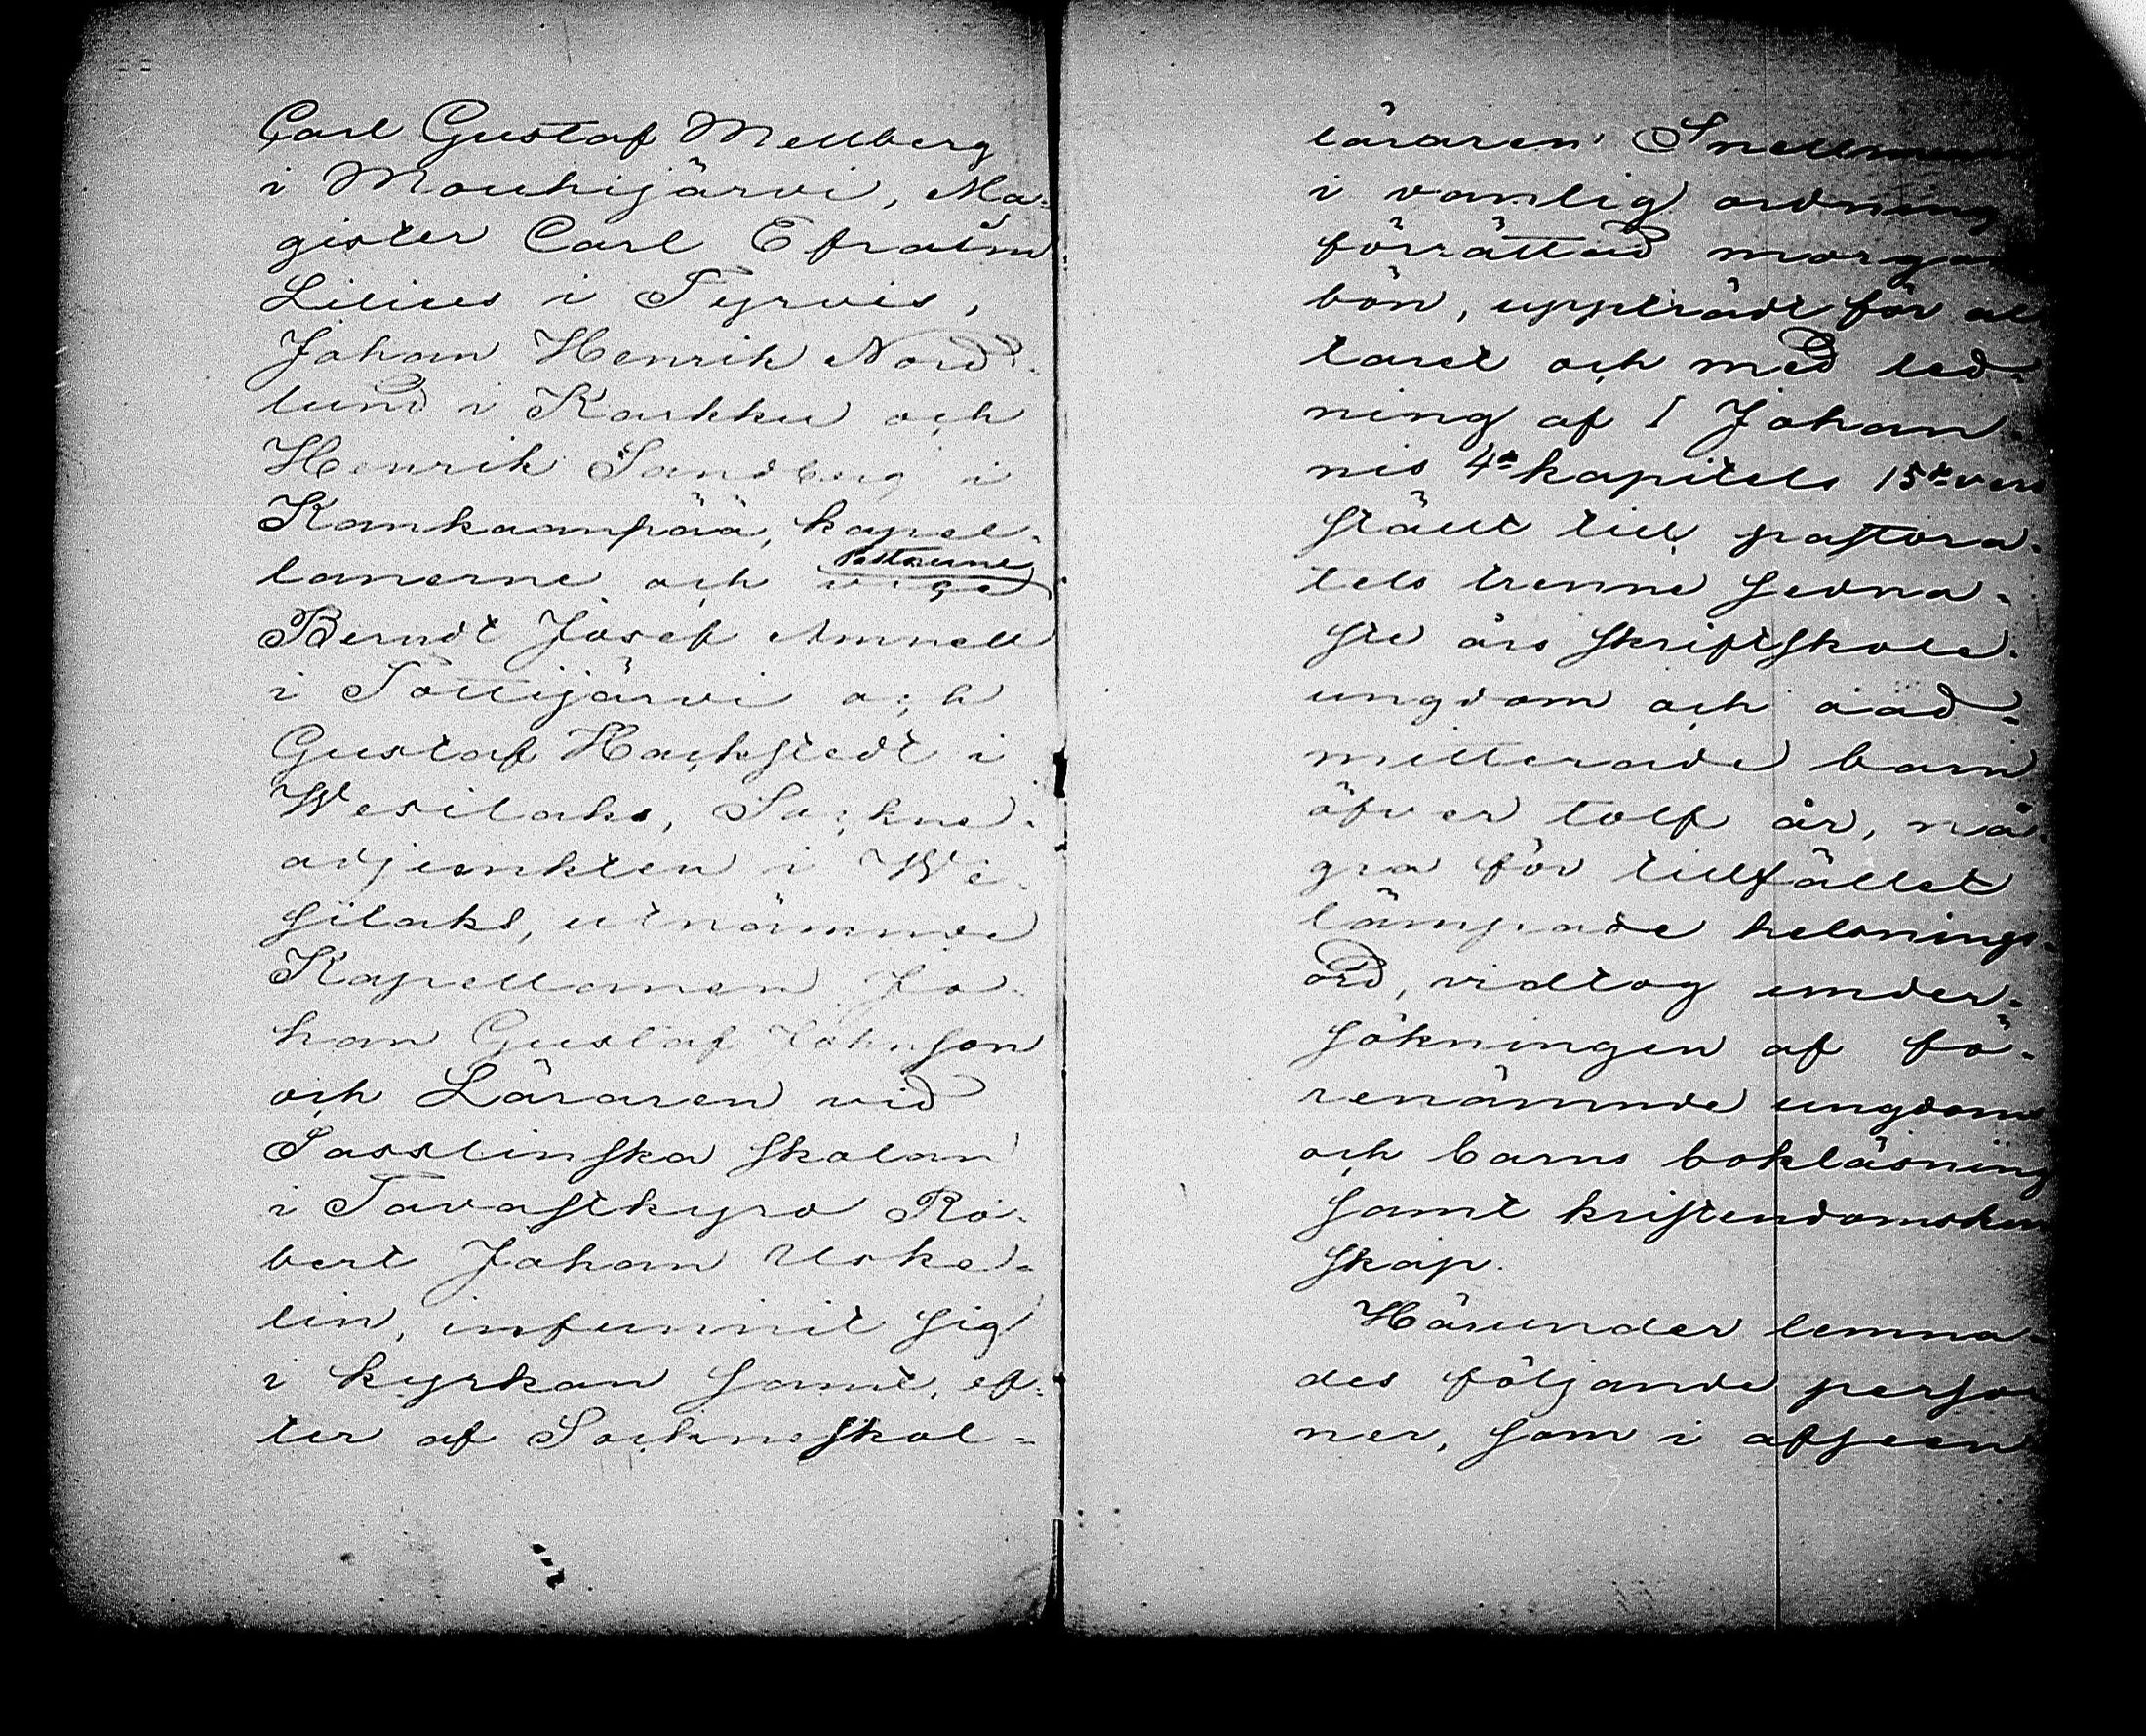 Carl Gustaf Mellberg
i Mouhijärvi, Ma-
gister Carl Efraim
Lilius i Tyrvis,
Johan Henrik Nord-
lund i Karkku och
Henrik Sandberg i
Kankaanpää, kapel-
lanerne och Pastorerne
Berndt Josef Amnell
i Tottijärvi och
Gustaf Hackstedt i
Wesilaks, Sockne-
adjunkten i We-
silaks, utnämnde
Kapellanen Jo-
han Gustaf Johnson
och Läraren vid
Sasslinska skolan
i Tavastkyro Ro-
bert Johan Uske-
lin, infunnit sig
i kyrkan samt, ef-
ter af Sockneskol-
läraren Snellman
i vanlig ordning
förrättad morgon
bön, uppträdt för al
taret och med led-
ning af I Johan-
nis 4e kapitels 15de vers
ställt till pastora-
tets trenne sedna-
ste års skriftskole-
ungdom och oad-
mitterade barn
öfver tolf år, nå-
gra för tillfället
lämpade helsnings-
ord, vidtog under-
sökningen af fö-
renämnde ungdoms
och barns bokläsning
samt kristendomskun
skap.
Härunder lemna-
des följande perso
ner, som i afseen